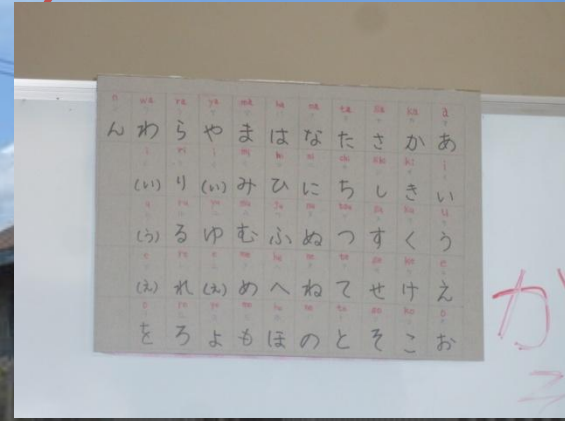 n wa ra ya ma ha na ta sa ka a
ん わ ら や ま は な た さ か あ
i ri i mi hi ni chi shi ki i
(い) り (い) み ひ に ち し き い
u ru yu mu fu nu tsu su ku u
(う) る ゆ む ふ ぬ つ す く う
e re e me he ne te se ke e
(え) れ (え) め へ ね て せ け え
o ro yo mo ho no to so ko o
を ろ よ も ほ の と そ こ お